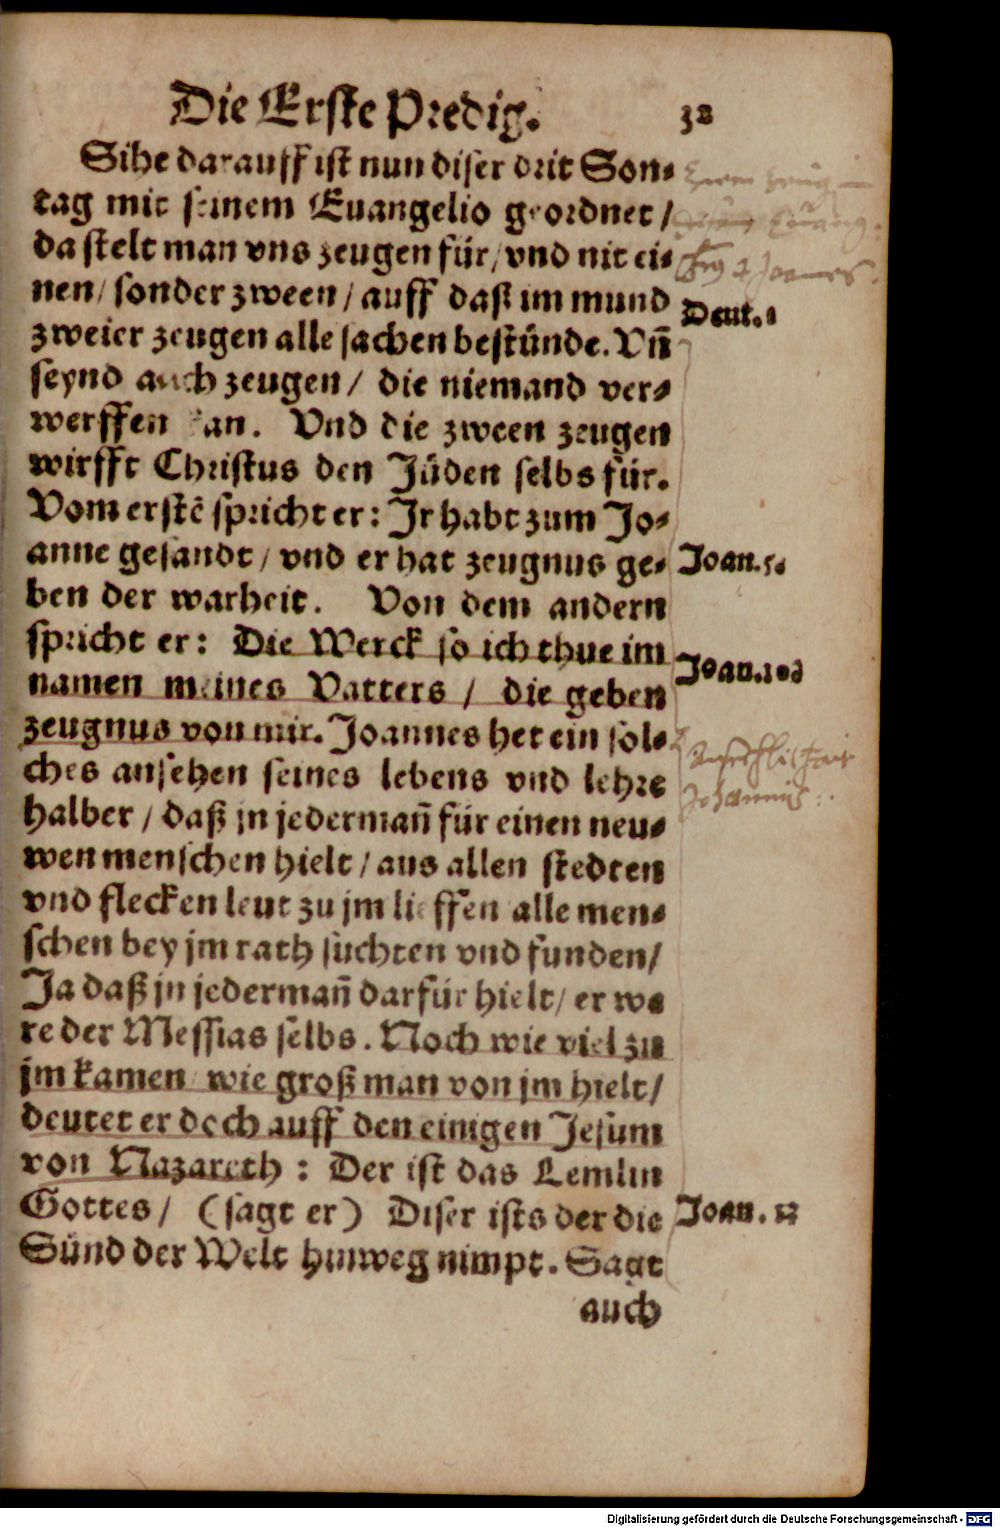 Die Erste Predig. 32
Sihe darauff ist nun diser drit Son⸗
tag mit seinem Euangelio geordnet /
da stelt man vns zeugen für / vnd nit ei⸗
nen / sonder zween / auff dasz im mund
Deut. 1
zweier zeugen alle sachen bestünde. Vñ
seynd auch zeugen / die niemand ver⸗
werffen kan. Vnd die zween zeugen
wirfft Christus den Jüden selbs für.
Vom erstē spricht er: Jr habt zum Jo⸗
anne gesandt / vnd er hat zeugnus ge⸗
Joan. 5.
ben der warheit. Von dem andern
spricht er: Die Werck so ich thue im
Joan. 10.
namen meines Vatters / die geben
zeugnus von mir. Joannes het ein sol⸗
ches ansehen seines lebens vnd lehre
Johannis
halber / daß jn jedermañ für einen neu⸗
wen menschen hielt / aus allen stedten
vnd flecken leut zu jm lieffen alle men⸗
schen bey jm rath suchten vnd funden /
Ja daß jn jedermañ darfür hielt / er we
re der Messias selbs. Noch wie viel zu
jm kamen / wie groß man von jm hielt /
deutet er doch auff den einigen Jesum
von Nazareth : Der ist das Lemlin
Gottes / (sagt er) Diser ists der die
Joan.
Sünd der Welt hinweg nimpt. Sagt
auch
Digitalisierung gefördert durch die Deutsche Forschungsgemeinschaft - DFG